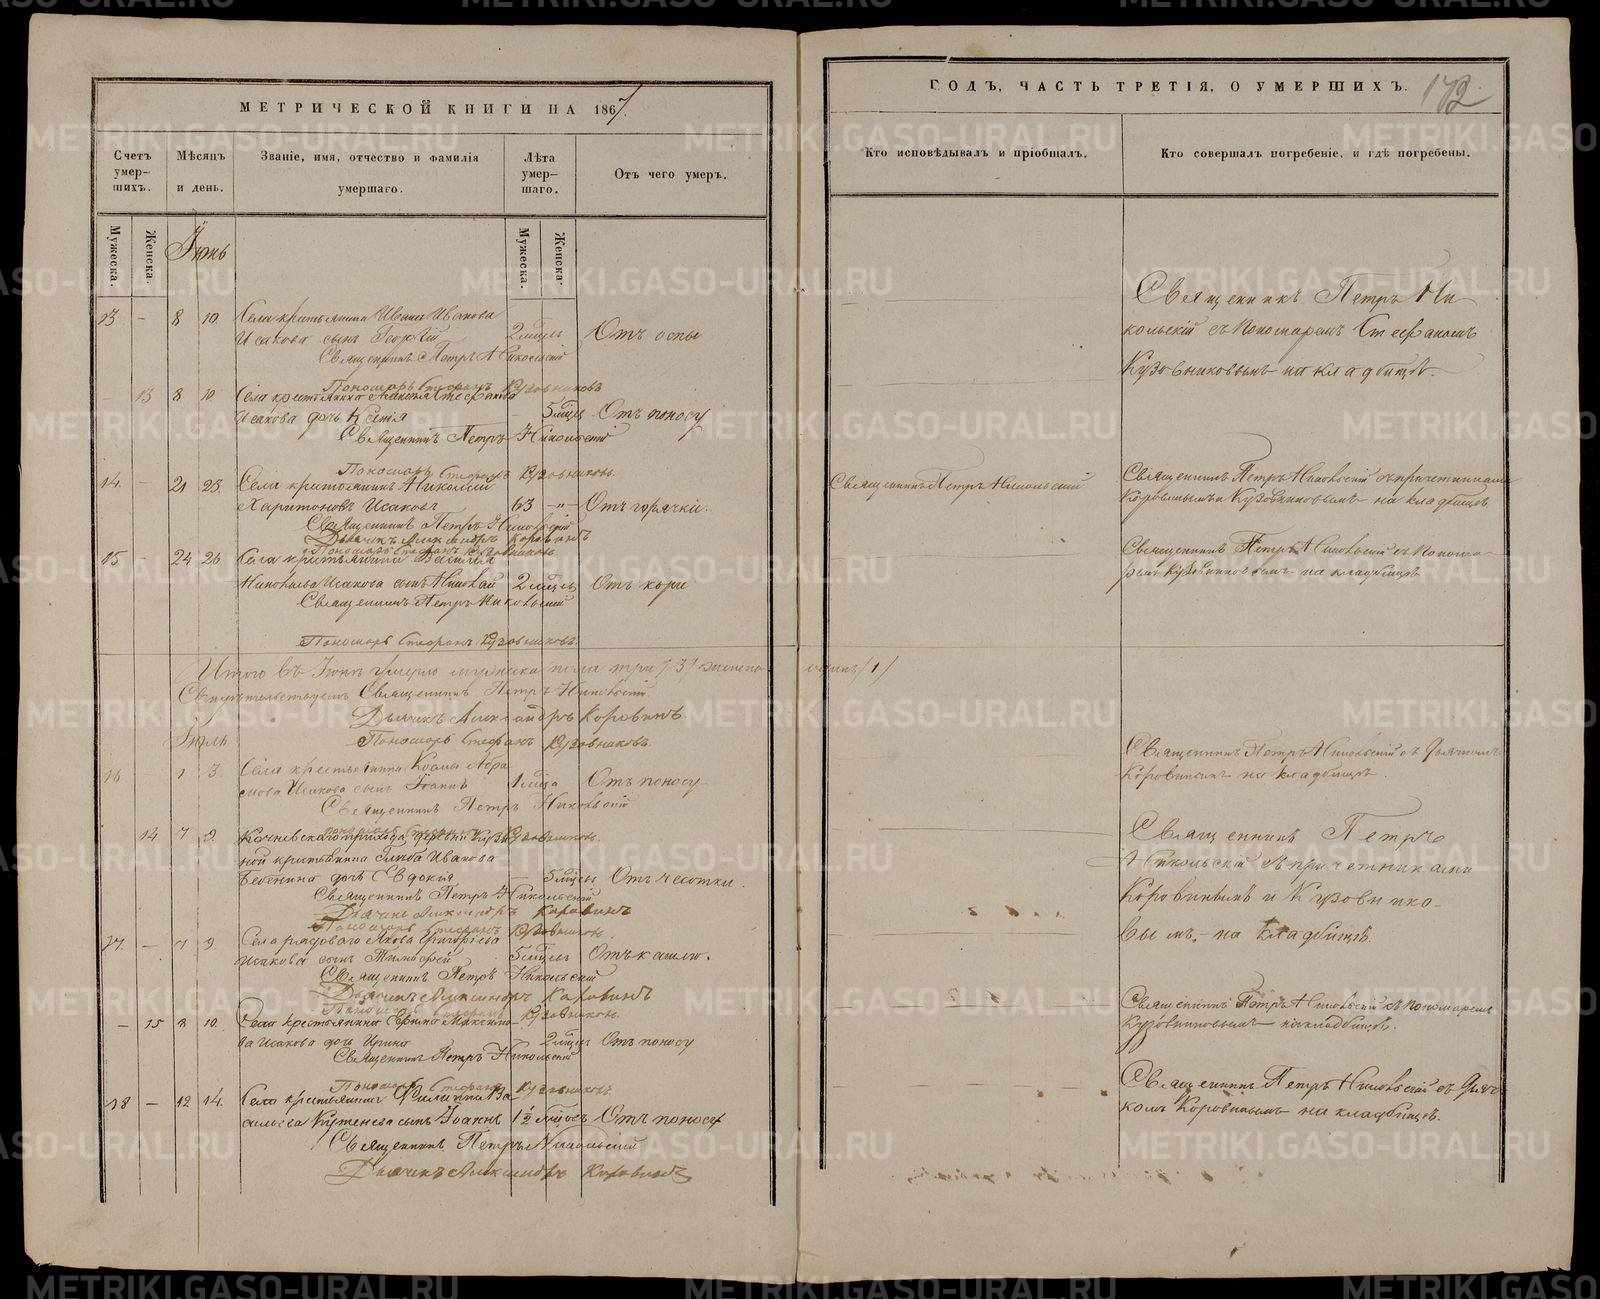 МЕТРИЧЕСКОЙ КНИГИ НА 1867
Счетъ умер-шихъ.
Мѣсяцъ и день.
Званіе, имя, отчество и фамилія умершаго.
Лѣта умер-шаго.
Отъ чего умеръ.
Мужеска.
Женска.
Мужеска.
Женска.
Іюнь
13 - 8 10 Села крестьянина Ивана Иванова
Исакова сынъ Георгій 2 мѣсяц Отъ оспы
Священникъ Петръ Никольскій
Пономарь Стефанъ Кузовниковъ
- 13 8 10 Села крестьянина Стефанова
Исакова дочь Ксенія - 5 мѣсц Отъ поносу
Священникъ Петръ Никольскій
Пономарь Стефанъ Кузовниковъ
14 - 21 23 Села крестьянинъ Николай
Харитоновъ Исаковъ 63 -"- Отъ горячки.
Священникъ Петръ Никольскій
Дьячекъ Александръ Коровинъ
Пономарь Стефанъ Кузовниковъ
15 - 24 26 Села крестьянина Василья
Николаева Исакова сынъ Николай 2 мѣсц Отъ кори
Священникъ Петръ Никольскій
Пономарь Стефанъ Кузовниковъ
Итого въ Іюнѣ умерло мужеска пола три /3/ женска один /1/
Свидѣтельствуемъ Священникъ Петръ Никольскій
Дьячекъ Александръ Коровинъ
Пономарь Стефанъ Кузовниковъ
Іюль
16 1 3 Села крестьянина Козмы Абра
мова Исакова сынъ Іоаннъ 1 мѣсца Отъ поносу
Священникъ Петръ Никольскій
Пономарь Стефанъ Кузовниковъ
14 7 9 Кочневскаго прихода деревни
ной крестьянина Глѣба Иванова
Бебенина дочь Евдокія 5 мѣсцы Отъ чесотки.
Священникъ Петръ Никольскій
Дьячекъ Александръ Коровинъ
Пономарь Стефанъ Кузовниковъ
17 - 7 9 Села рядоваго Якова Григорьева
Исакова сынъ Тимофей 5 мѣсцы Отъ кашлю.
Священникъ Петръ Никольскій
Дьячекъ Александръ Коровинъ
Пономарь Стефанъ Кузовниковъ
- 15 8 10 Села крестьянина Максимо
ва Исакова дочь Ирина 2 мѣсцы Отъ поносу
Священникъ Петръ Никольскій
Пономарь Стефанъ Кузовниковъ
18 - 12 14 Села крестьянина Филиппа Ва
сильева сынъ Іоаннъ 1 1/2 мѣсц Отъ поносу
Священникъ Петръ Никольскій
Дьячекъ Александръ Коровинъ
ГОДЪ, ЧАСТЬ ТРЕТІЯ, О УМЕРШИХЪ.
Кто исповѣдывалъ и пріобщалъ.
Кто совершалъ погребеніе, и гдѣ погребены.
Священникъ Петръ Ни
кольскій съ Пономаремъ Стефаномъ
Кузовниковымъ на кладбищѣ.
Священникъ Петръ Никольскій
Священникъ Петръ Никольскій съ причетниками
Коровинымъ и Кузовниковымъ на кладбищѣ
Священникъ Петръ Никольскій съ Понома
ремъ Кузовниковымъ на кладбищѣ
Священникъ Петръ Никольскій съ Дьячкомъ
Коровинымъ на кладбищѣ
Священникъ Петръ
Никольскій съ причетниками
Коровинымъ и Кузовнико-
вымъ на кладбищѣ.
Священникъ Петръ Никольскій съ пономаремъ
Кузовниковымъ на кладбищѣ.
Священникъ Петръ Никольскій съ Дьяч
комъ Коровинымъ на кладбищѣ.
METRIKI.GASO-URAL.RU